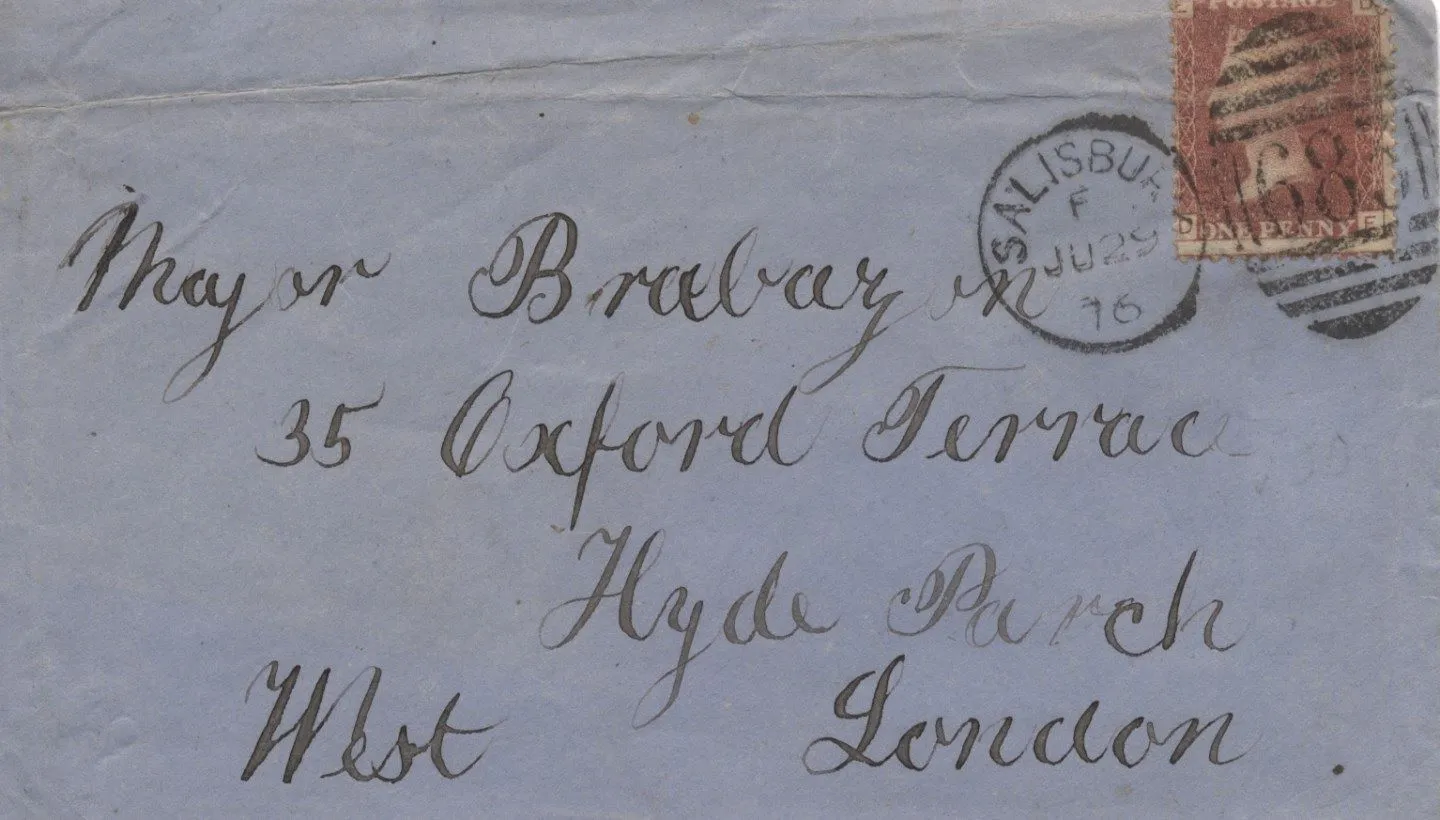 POSTAGE
SALISBURY
F
JU 29
76
683
D ONE PENNY E
Major Brabazon
35 Oxford Terrace
Hyde Parch
West London.